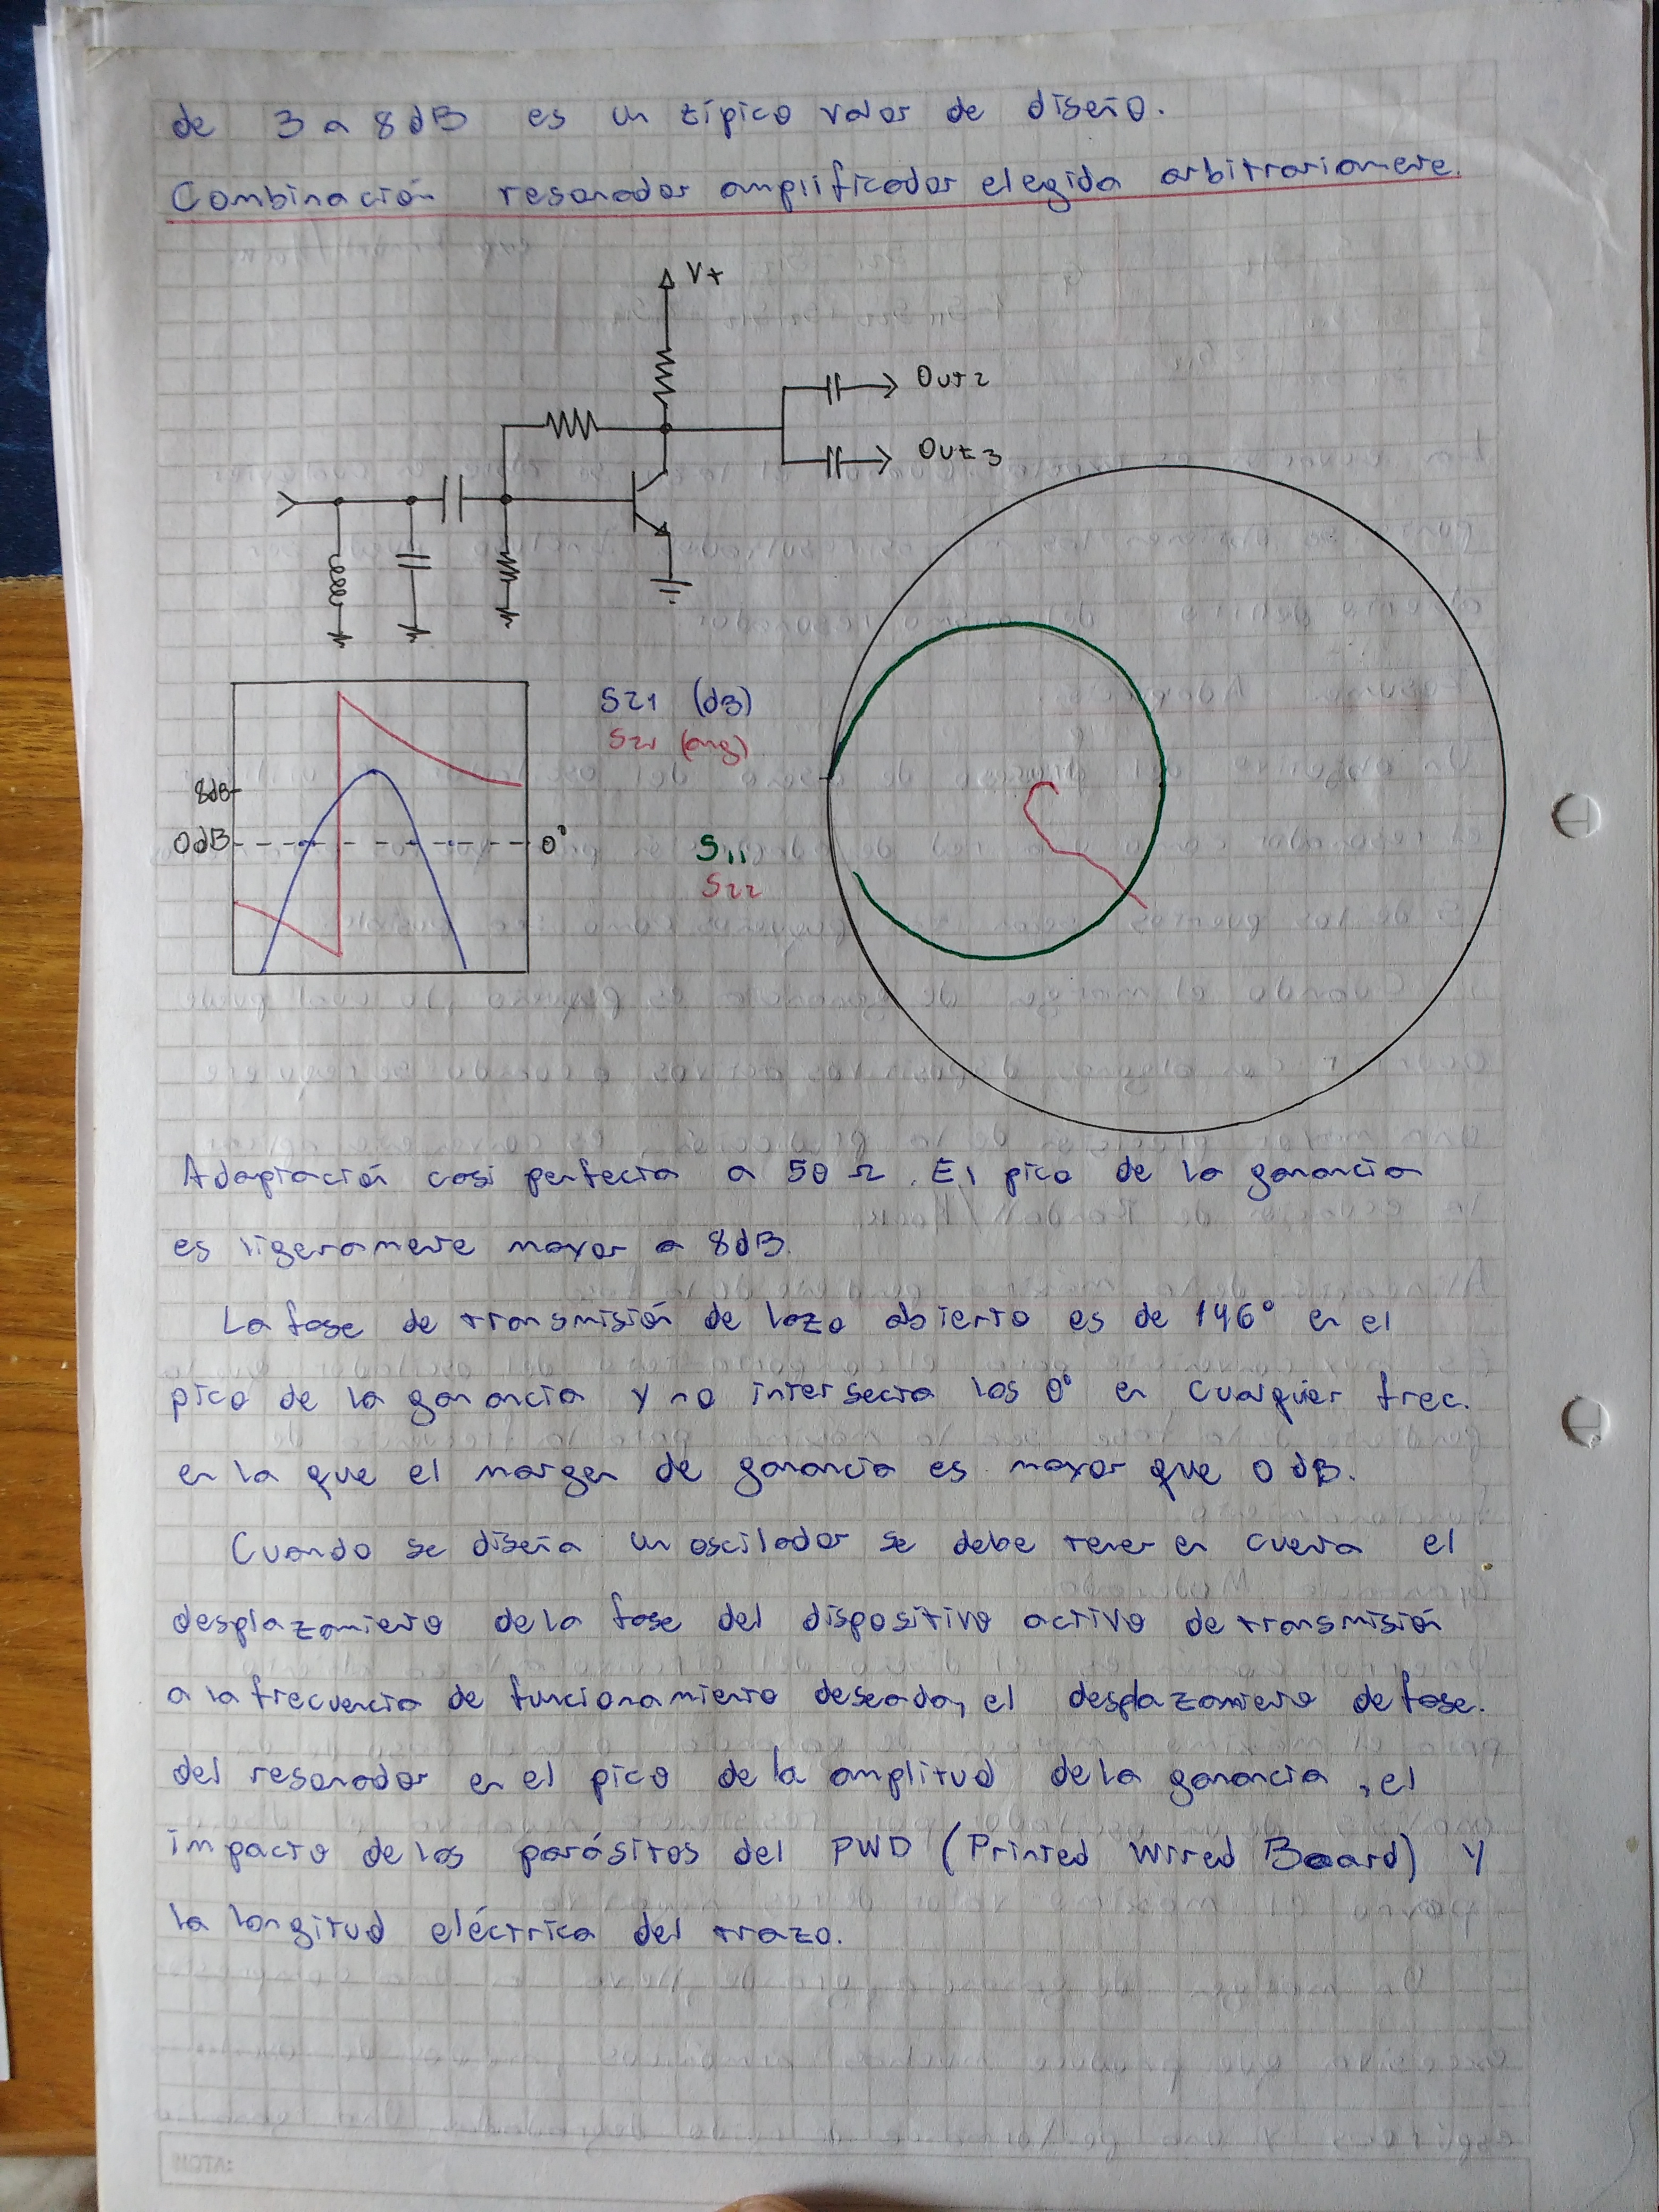 de 3 a 8dB es un típico valor de diseño.
Combinación resonador amplificador elegida arbitrariamente.
V+
Out2
Out3
S21 (dB)
S21 (ang)
8dB
0dB
0°
S11
S22
Adaptación casi perfecta a 50 Ω. El pico de la ganancia
es ligeramente mayor a 8dB.
La fase de transmisión de lazo abierto es de 146° en el
pico de la ganancia y no intersecta los 0° en cualquier frec.
en la que el margen de ganancia es mayor que 0 dB.
Cuando se diseña un oscilador se debe tener en cuenta el
desplazamiento de la fase del dispositivo activo de transmisión
a la frecuencia de funcionamiento deseada, el desplazamiento de fase.
del resonador en el pico de la amplitud de la ganancia, el
impacto de los parásitos del PWD (Printed Wired Board) y
la longitud eléctrica del trazo.